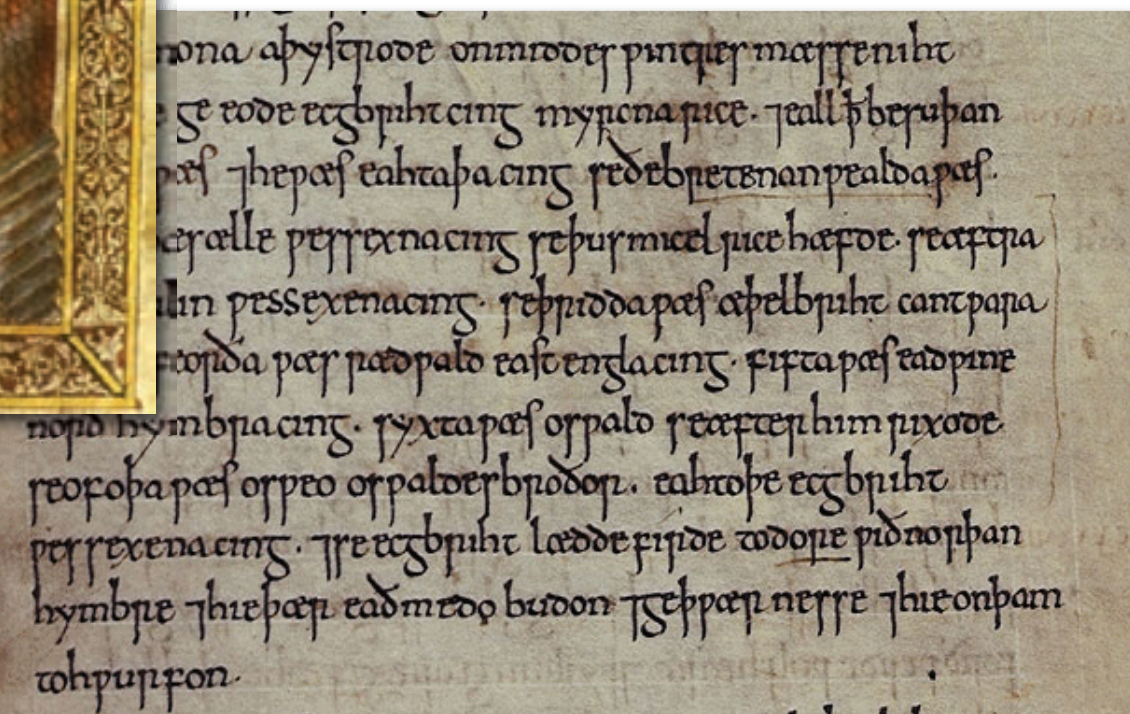 mona aþystrode on middes wintres mæsseniht
ge eode ecgbriht cing myrcna rice. ⁊ eall ꝥ be suþan
wæs ⁊ he wæs eahtaþa cing se ðe bretenanwealda wæs.
ælle west sexna cing se þus micel rice hæfde. se æftra
lin wessexena cing. se þridda wæs æþelbriht cantwara
feorða wæs rædwald east engla cing. fifta wæs eadwine
norð hymbra cing. syxta wæs oswald se æfter him rixode.
seofoþa wæs osweo oswaldes broðor. eahtoþe ecgbriht
wessexena cing. ⁊ se ecgbriht lædde firde to dore wið norþan
hymbre ⁊ hie þær eaðmedo budon ⁊ geþwærnesse ⁊ hie on þam
tohwurfon.